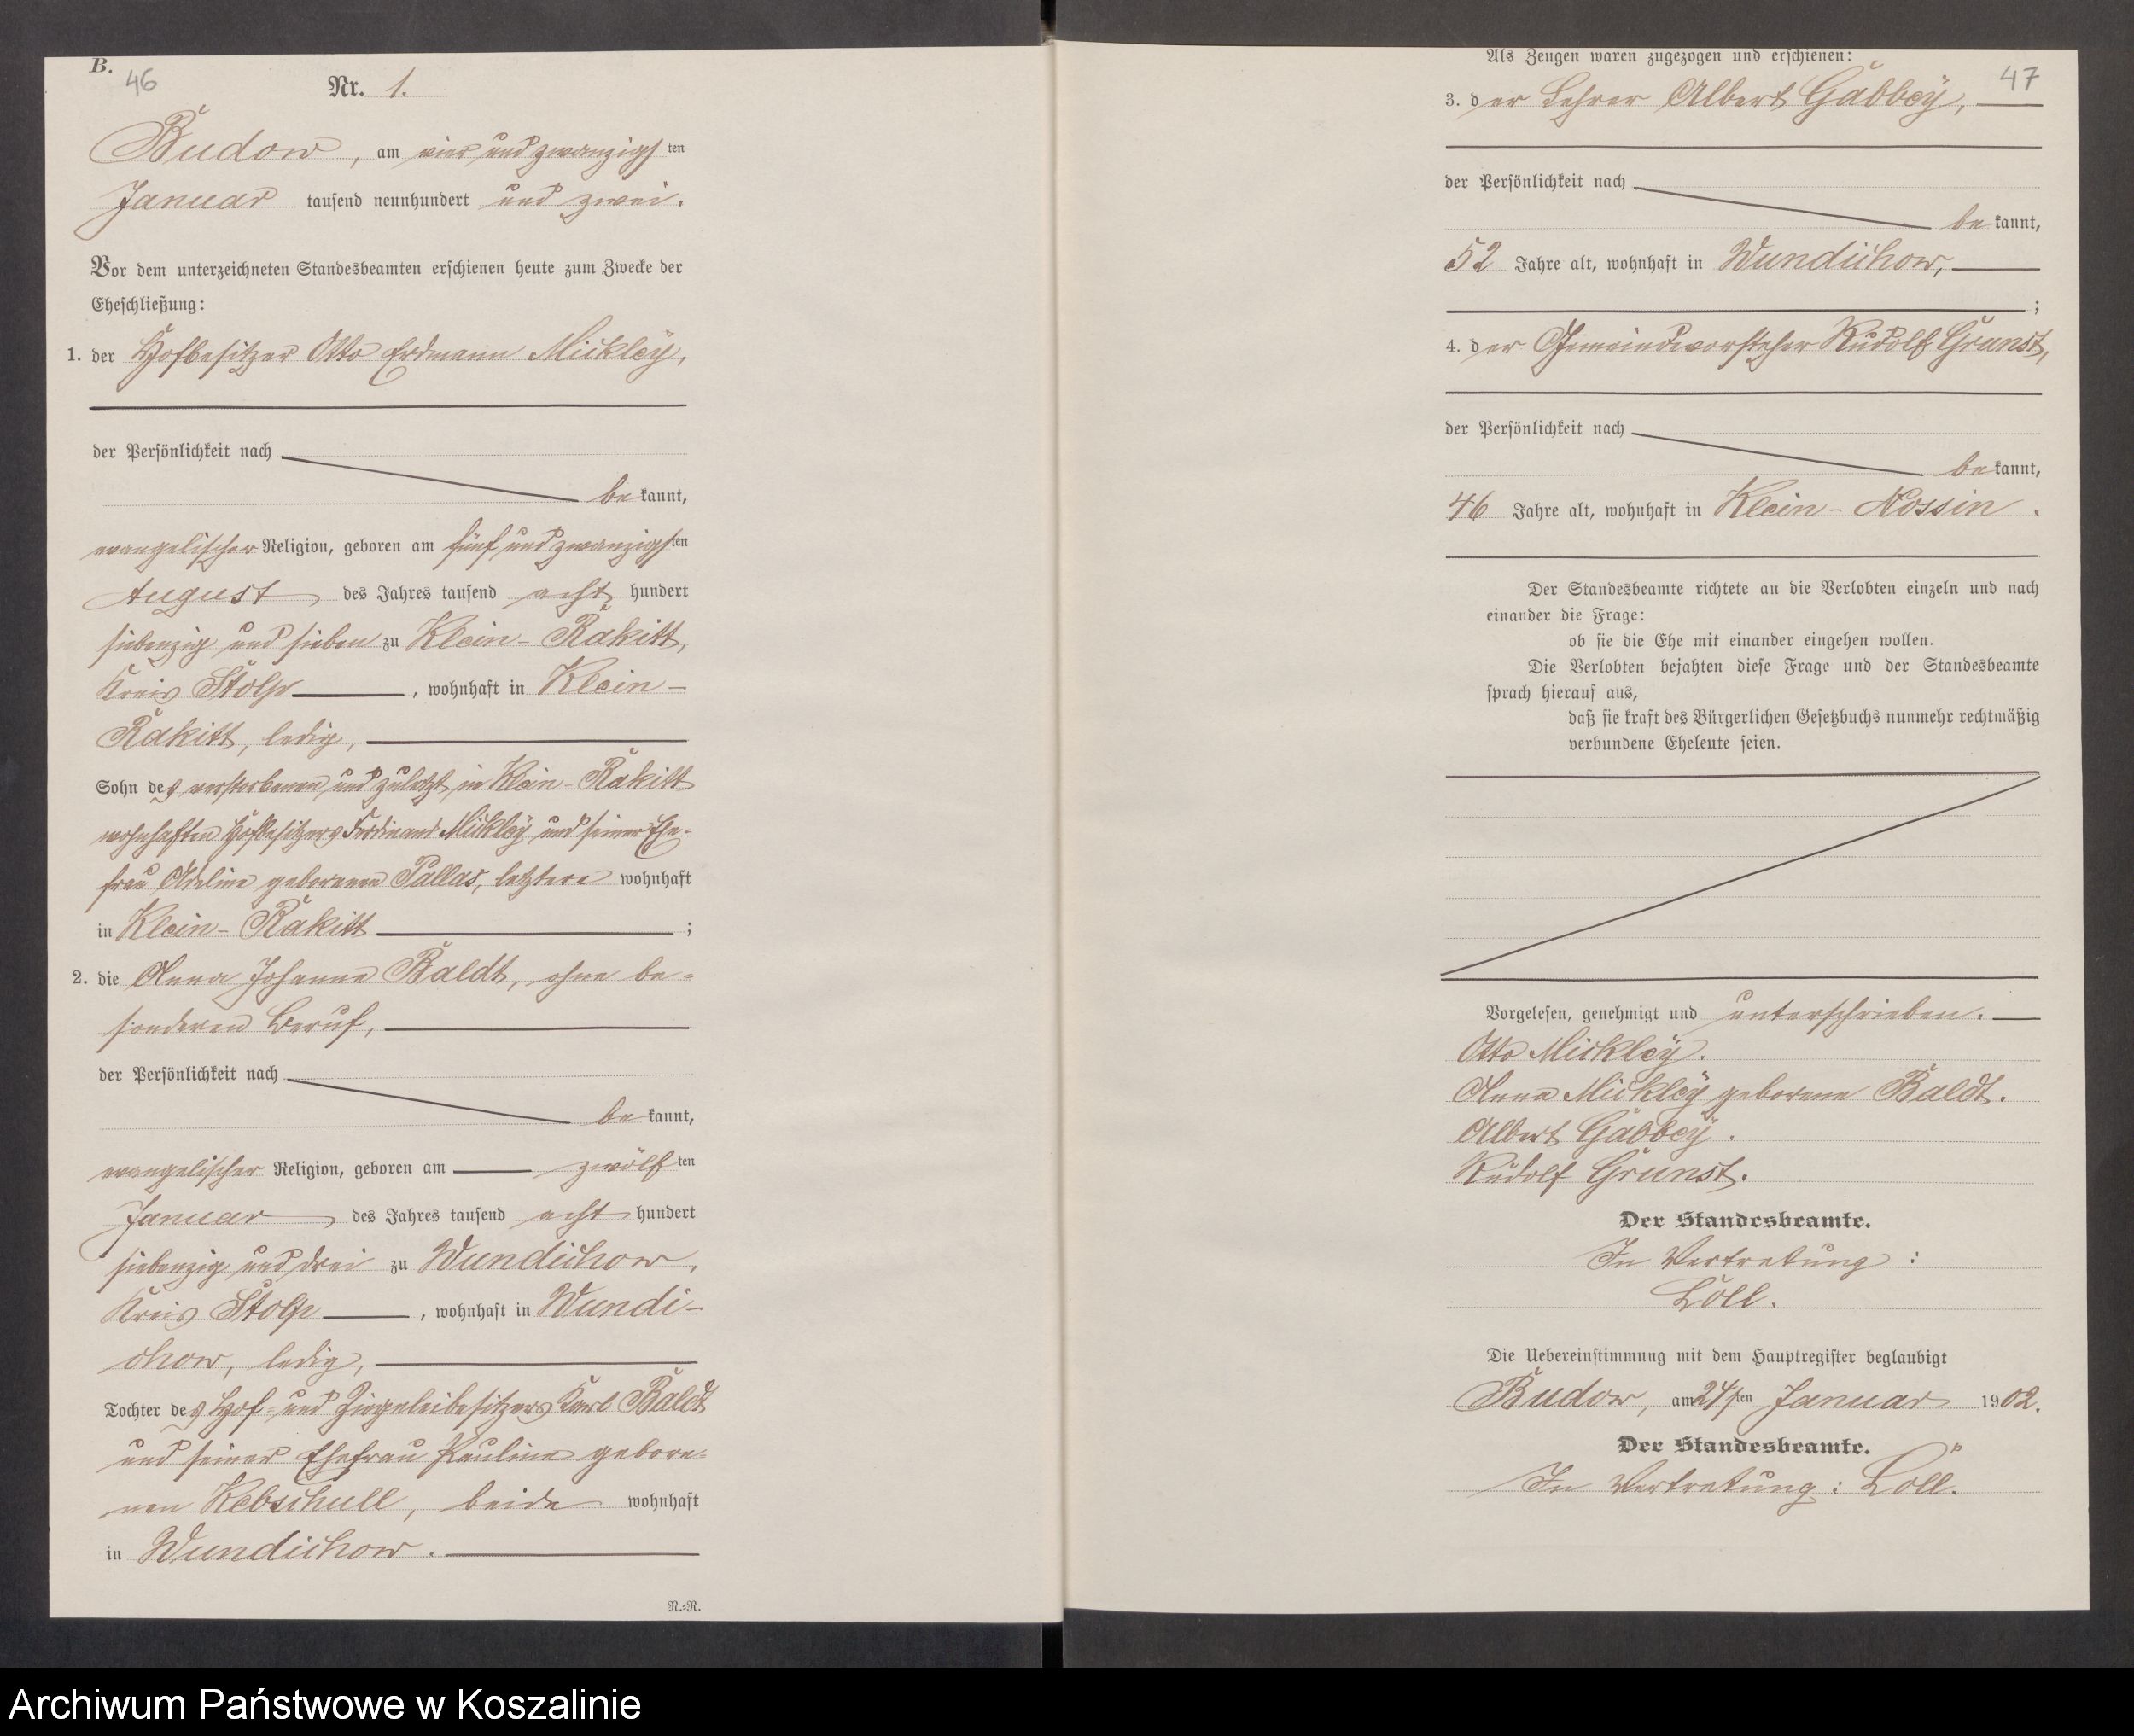 B.
46
Nr. 1.
Budow, am vier und zwanzigsten
Januar tausend neunhundert und zwei.
Vor dem unterzeichneten Standesbeamten erschienen heute zum Zwecke der
Eheschließung:
1. der Hofbesitzer Otto Erdmann Mickley,
der Persönlichkeit nach
bekannt,
evangelischer Religion, geboren am fünf und zwanzigsten
August des Jahres tausend acht hundert
siebenzig und sieben zu Klein-Rakitt,
Kreis Stolp, wohnhaft in Klein-
Rakitt, ledig,
Sohn des verstorbenen und zuletzt in Klein-Rakitt
wohnhaften Hofbesitzers Ferdinand Mickley und seiner Ehe-
frau Adeline geborenen Pallas, letztere wohnhaft
in Klein-Rakitt;
2. die Anna Johanne Baldt, ohne be-
sonderen Beruf,
der Persönlichkeit nach
bekannt,
evangelischer Religion, geboren am zwölften
Januar des Jahres tausend acht hundert
siebenzig und drei zu Wundichow,
Kreis Stolp, wohnhaft in Wundi-
chow, ledig,
Tochter des Hof- und Ziegeleibesitzers Karl Baldt
und seiner Ehefrau Pauline gebore-
nen Kebschull, beide wohnhaft
in Wundichow.
N.=R.
Als Zeugen waren zugezogen und erschienen:
47
3. der Lehrer Albert Gabbey,
der Persönlichkeit nach
bekannt,
52 Jahre alt, wohnhaft in Wundichow,
;
4. der Gemeindevorsteher Rudolf Grunst,
der Persönlichkeit nach
bekannt,
46 Jahre alt, wohnhaft in Klein-Nossin.
Der Standesbeamte richtete an die Verlobten einzeln und nach
einander die Frage:
ob sie die Ehe mit einander eingehen wollen.
Die Verlobten bejahten diese Frage und der Standesbeamte
sprach hierauf aus,
daß sie kraft des Bürgerlichen Gesetzbuchs nunmehr rechtmäßig
verbundene Eheleute seien.
Vorgelesen, genehmigt und unterschrieben.
Otto Mickley.
Anna Mickley geborene Baldt.
Albert Gabbey.
Rudolf Grunst.
Der Standesbeamte.
In Vertretung:
Löll.
Die Uebereinstimmung mit dem Hauptregister beglaubigt
Budow, am 24sten Januar 1902.
Der Standesbeamte.
In Vertretung: Löll.
Archiwum Państwowe w Koszalinie